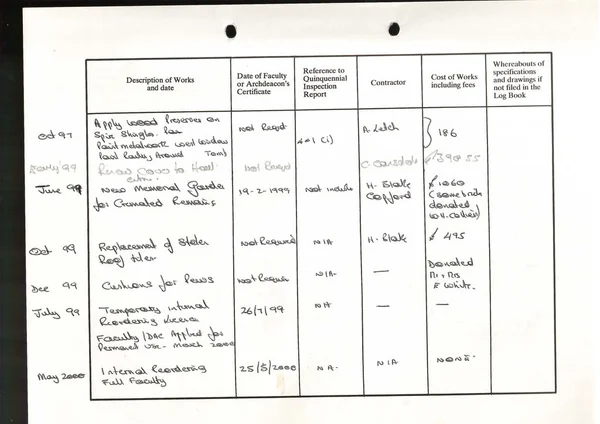 Description of Works and date
Date of Faculty or Archdeacon's Certificate
Reference to Quinquennial Inspection Report
Contractor
Cost of Works including fees
Whereabouts of specifications and drawings if not filed in the Log Book
Oct 97
Apply wood Preserver on
Spire Shingles.
Paint metalwork west window
Not Requd
4.1 (i)
A. Letch
186
Early '99
Not Requd
£390 55
June 99
New Memorial Garden
for Cremated Remains
19-2-1999
Not inclu
H. Blake
Copford
£1060
(some bricks
donated
Oct 99
Replacement of Stolen
Roof tiles
Not Required
N/A
H. Blake
£495
Dec 99
Cushions for Pews
Not Require
N/A
—
Donated
Mr + Mrs
E White.
July 99
Temporary Internal
Reordering Licence
26/7/99
NA
—
—
Faculty / DAC Applied for
Permanent Use - March 2000
May 2000
Internal Reordering
Full Faculty
25/5/2000
N A.
N/A
NONE.